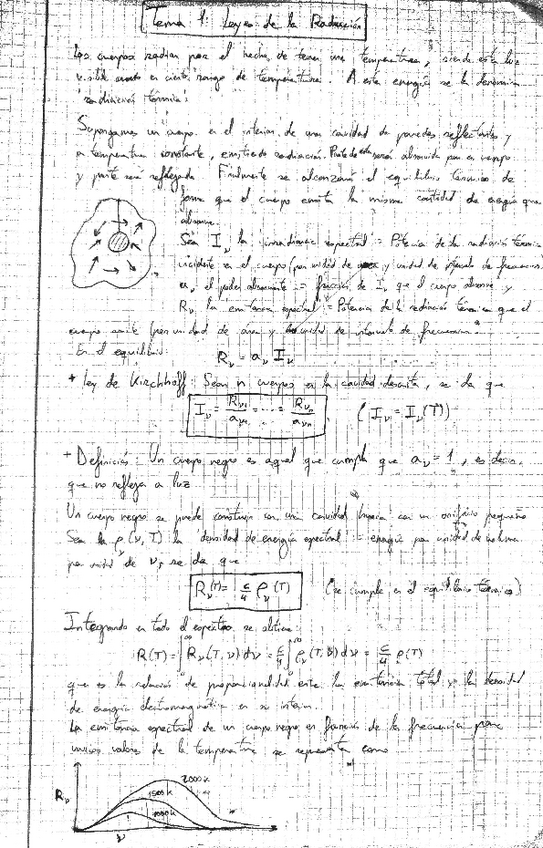 Tema 1: Leyes de la Radiación
Los cuerpos radian por el hecho de tener una temperatura, siendo esta luz
visible cuando en cierto rango de temperaturas. A esta energía se la denomina
radiación térmica.
Supongamos un cuerpo en el interior de una cavidad de paredes reflectantes y
a temperatura constante, emitiendo radiación. Parte de esta será absorbida por en cuerpo
y parte será reflejada. Finalmente se alcanzará el equilibrio térmico de
forma que el cuerpo emita la misma cantidad de energía que
absorbe.
Sea I_ν la irradiancia espectral = Potencia de la radiación térmica
incidente en el cuerpo (por unidad de área y unidad de intervalo de frecuencia)
a_ν el poder absorbente = fracción de I_ν que el cuerpo absorbe y
R_ν la emitancia espectral = Potencia de la radiación térmica que el
cuerpo emite (por unidad de área y unidad de intervalo de frecuencia)
En el equilibrio: R_ν = a_ν I_ν
+ Ley de Kirchhoff: Sean n cuerpos en la cavidad descrita, se da que
I_ν = R_ν1/a_ν1 = ... = R_νn/a_νn (I_ν = I_ν(T))
+ Definición: Un cuerpo negro es aquel que cumple que a_ν = 1, es decir,
que no refleja a luz
Un cuerpo negro se puede construir con una cavidad hueca con un orificio pequeño
Sea la ρ(ν,T) la densidad de energía espectral = energía por unidad de volumen
por unidad de ν, se da que
R_ν(T) = c/4 ρ_ν(T) (se cumple en el equilibrio térmico)
Integrando en todo el espectro se obtiene:
R(T) = ∫₀^∞ R_ν(T,ν) dν = c/4 ∫₀^∞ ρ_ν(T,ν) dν = c/4 ρ(T)
que es la relación de proporcionalidad entre la emitancia total y la densidad
de energía electromagnética en su interior.
La emitancia espectral de un cuerpo negro en función de la frecuencia para
varios valores de la temperatura se representa como
R_ν
2000K
1500K
1000K
ν